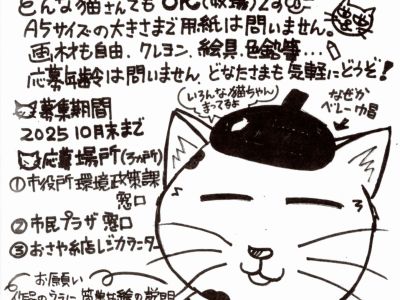 どんな猫さんでもOK(收蔵)です
A5サイズの大きさまで用紙は問いません。
画材も自由、クレヨン、絵具、色鉛筆…
応募年齢は問いません、どなたさまも気軽にどうぞ!
募集期間
2025 10月末まで
いろんな猫ちゃん
まってるよ
なぜか
ベレー帽
応募場所(3カ所)
①市役所環境政策課
窓口
②市民プラザ窓口
③おさや糸店レジカウンター
お願い